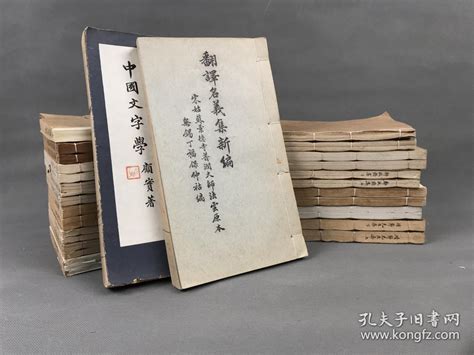 中國文字學
顧實著
翻譯名義集新編
宋姑蘇景德寺普潤大師法雲原本
無錫丁福保仲祜編
孔夫子旧书网
www.kongfz.com